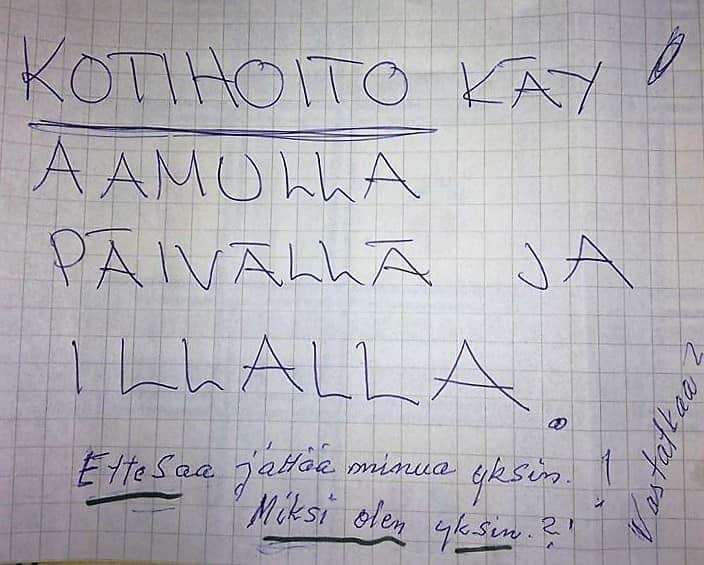 KOTIHOITO KÄY
AAMULLA
PÄIVÄLLÄ JA
ILLALLA.
Ette Saa jättää minua yksin. !
Miksi olen yksin.?
Vastatkaa?